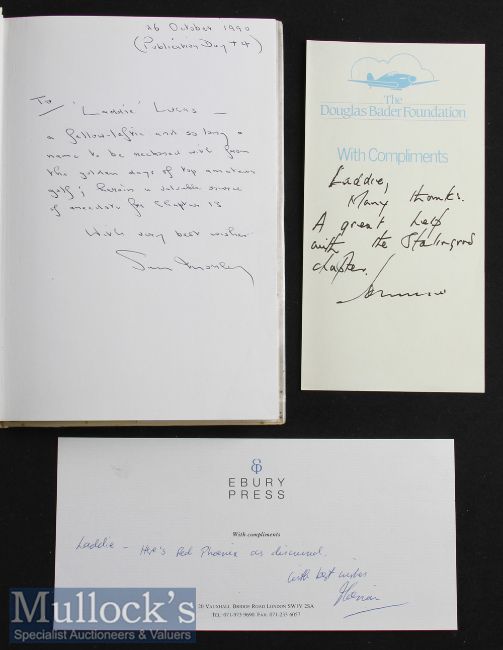 26 October 1990
(Publication Day + 4)
To 'Laddie' Lucas –
a fellow-leftie and so long a
name to be reckoned with from
the golden days of top amateur
golf; herein a valuable source
of anecdote for Chapter 13
With very best wishes
The
Douglas Bader Foundation
With Compliments
Laddie,
Many thanks.
A great help
with the Stalingrad
chapter.
EBURY
PRESS
With compliments
Laddie – Here's Red Phoenix as discussed.
with best wishes
20 VAUXHALL BRIDGE ROAD LONDON SW1V 2SA
TEL: 071-973-9690 FAX: 071-233-6057
Mullock's
Specialist Auctioneers & Valuers